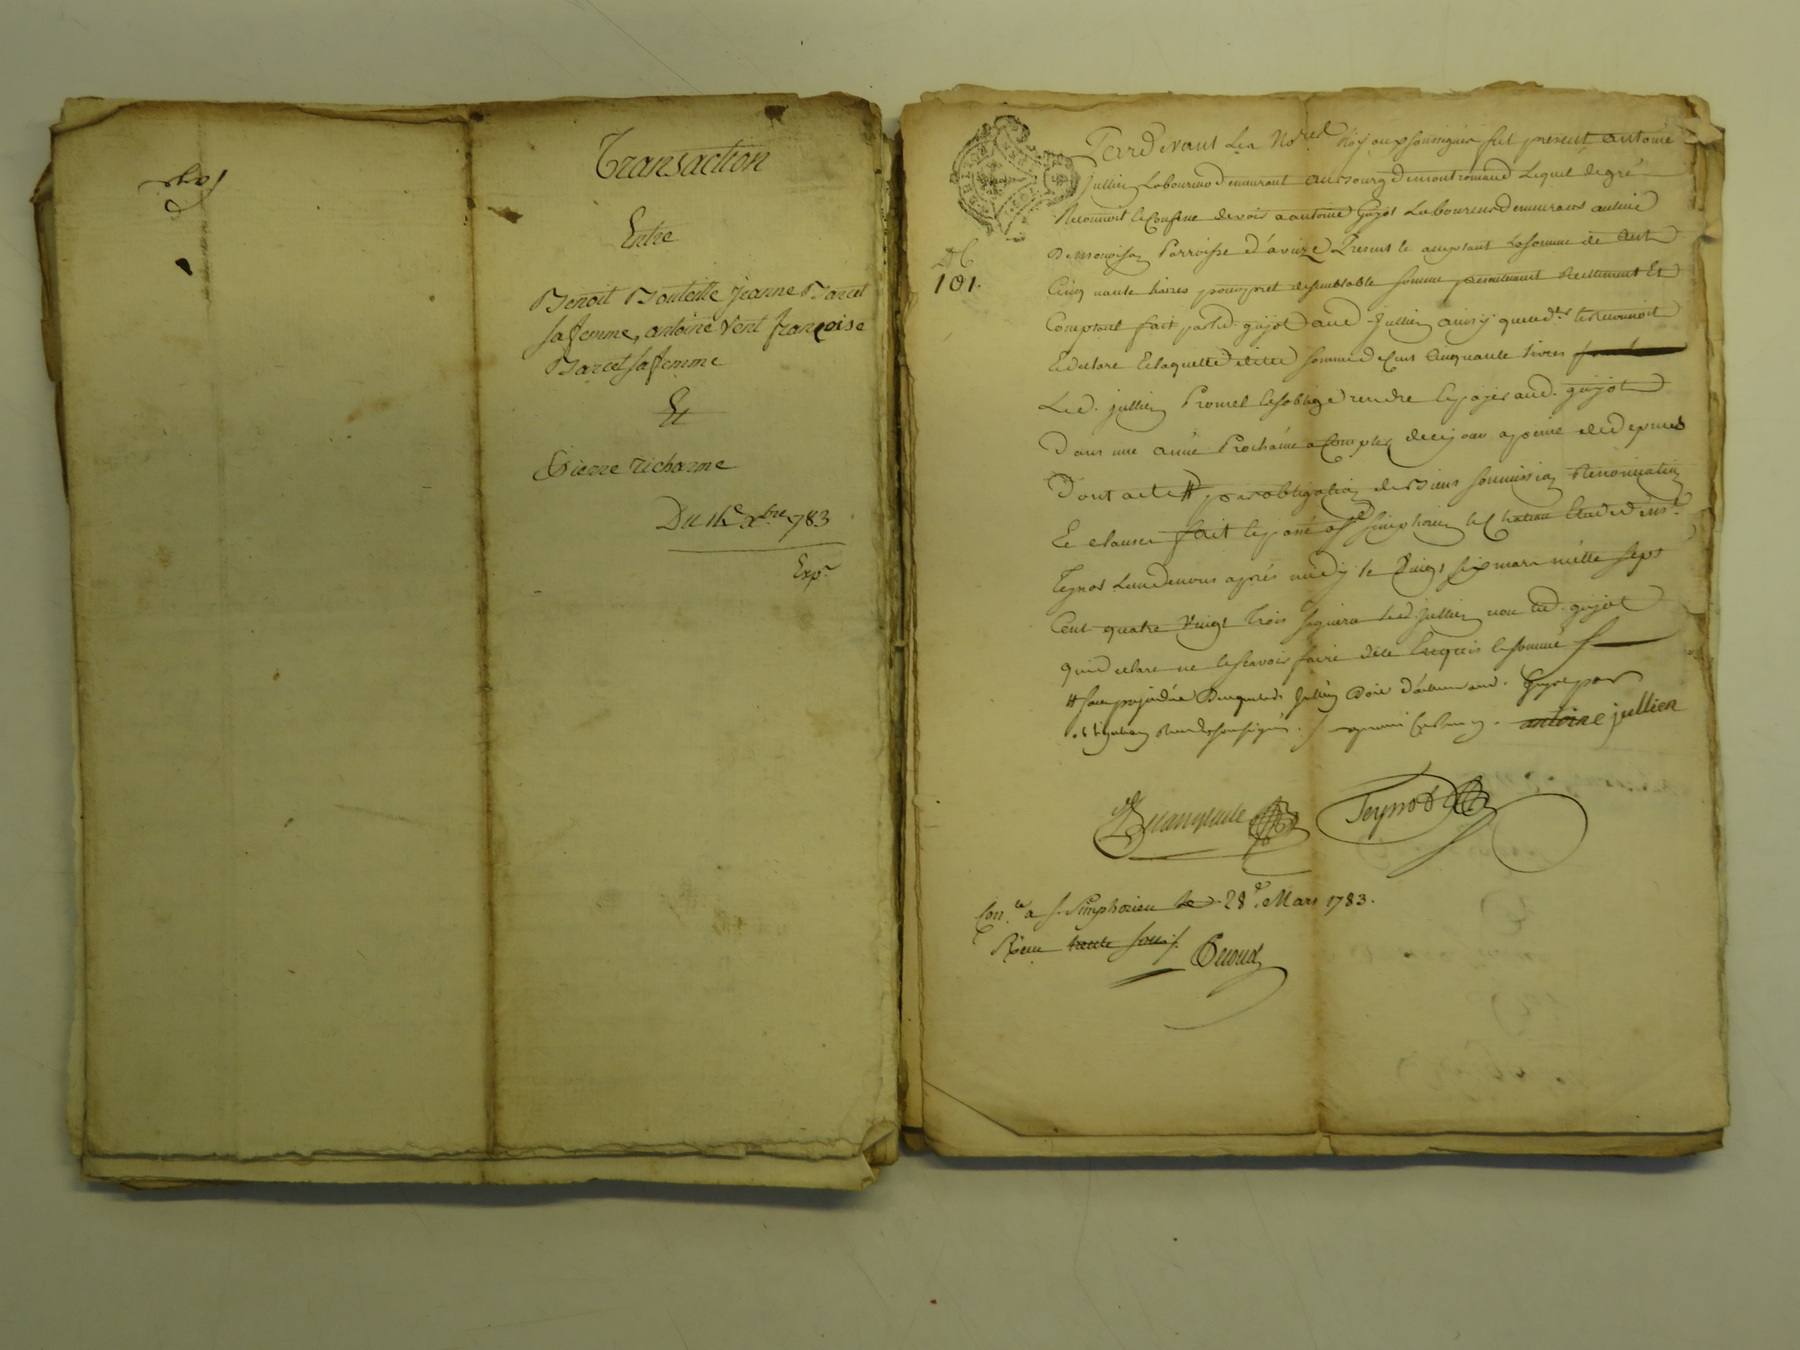 Transaction
Entre
Benoit Bouteille jeanne Barcet
sa femme, antoine Vent françoise
Barcet sa femme
Et
Pierre richarme
Du 14e xbre 1783
Expn
101.
Pardevant Les No.res Royaux soussignés fut présent antoine
jullien Laboureur demeurant au bourg de montromand Lequel de gré
Reconnoit & Confesse devoir a antoine Guyot Laboureur demeurant au lieu
parroisse d'aveize Present & acceptant La somme de Cent
Cinquante Livres pour pret de semblable somme Reellement Et
Comptant fait par led. guyot aud. Jullien ainsy que ledt. le Reconnoit
& declare & laquelle ditte somme de Cent Cinquante Livres
Led. jullien Promet & s'oblige rendre & payer aud. guyot
Dans une année Prochaine a Compter de ce jour a peine de depens
Dont acte # par obligation de biens soumission Renonciation
Et clauses fait & passé a St. simphorien le Chateau Etude de Me.
Teynot L'un de nous après midy le vingt six mars mille sept
Cent quatre Vingt Trois signera led. Jullien non led. guyot
qui declare ne le sçavoir faire de ce Enquis & sommé
# sans prejudice
antoine jullien
Teynot
Con.lé a St. Simphorien le 28e. Mars 1783.
Reçu trente sous